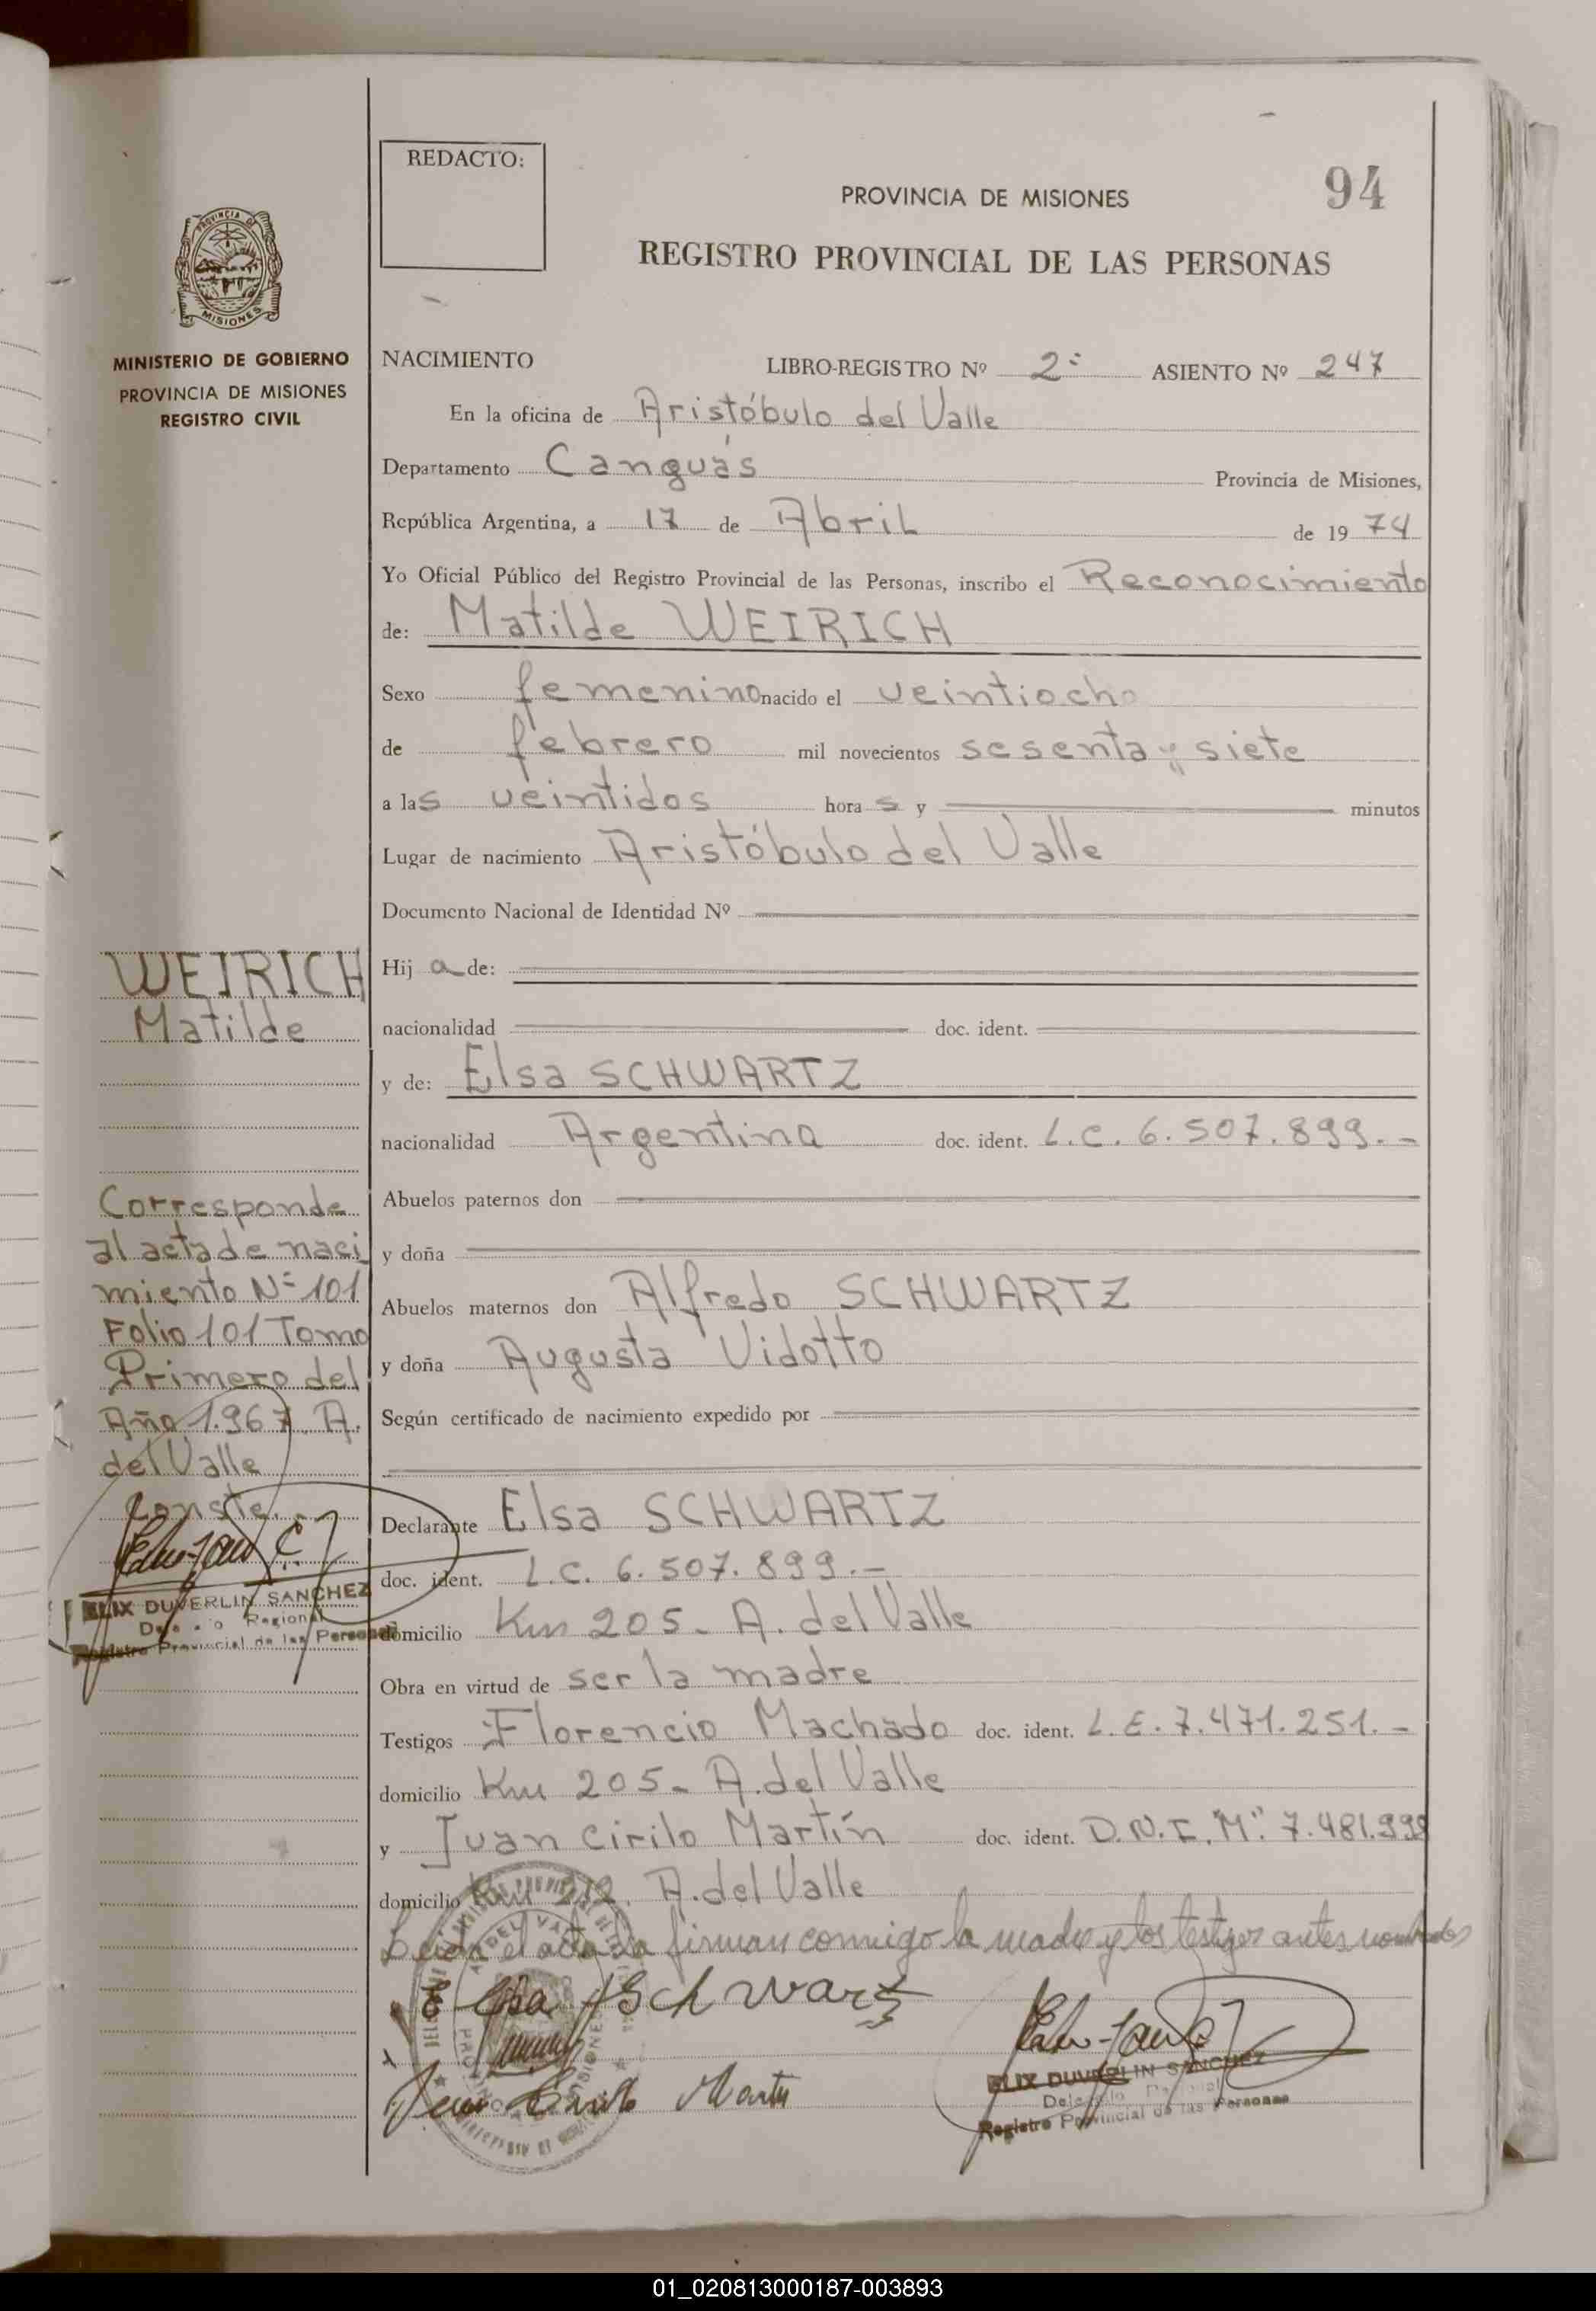 REDACTO:
94
PROVINCIA DE MISIONES
REGISTRO PROVINCIAL DE LAS PERSONAS
PROVINCIA DE
MISIONES
MINISTERIO DE GOBIERNO
PROVINCIA DE MISIONES
REGISTRO CIVIL
NACIMIENTO LIBRO-REGISTRO Nº 2º ASIENTO Nº 247
En la oficina de Aristóbulo del Valle
Departamento Canguás Provincia de Misiones,
República Argentina, a 17 de Abril de 1974
Yo Oficial Público del Registro Provincial de las Personas, inscribo el Reconocimiento
de: Matilde WEIRICH
Sexo femenino nacido el veintiocho
de febrero mil novecientos sesenta y siete
a las veintidos horas y minutos
Lugar de nacimiento Aristóbulo del Valle
Documento Nacional de Identidad Nº
Hija de:
nacionalidad doc. ident.
y de: Elsa SCHWARTZ
nacionalidad Argentina doc. ident. L.C. 6.507.899.-
Abuelos paternos don
y doña
Abuelos maternos don Alfredo SCHWARTZ
y doña Augusta Vidotto
Según certificado de nacimiento expedido por
Declarante Elsa SCHWARTZ
doc. ident. L.C. 6.507.899.-
domicilio Km 205- A. del Valle
Obra en virtud de ser la madre
Testigos Florencio Machado doc. ident. L.E. 7.471.251.-
domicilio Km 205- A. del Valle
y Juan Cirilo Martín doc. ident. D.N.I. "M". 7.481.999
domicilio Km 212. A. del Valle
Leida el acta la firman conmigo la madre y los testigos antes nombrados
Elsa Schwarz
Juan Cirilo Martin
ELIX DUVERLIN SANCHEZ
Delegado Regional
Registro Provincial de las Personas
WEIRICH
Matilde
Corresponde
al acta de naci
miento Nº 101
Folio 101 Tomo
Primero del
Año 1.967. A.
del Valle
Conste.
ELIX DUVERLIN SANCHEZ
Delegado Regional
Registro Provincial de las Personas
01_020813000187-003893